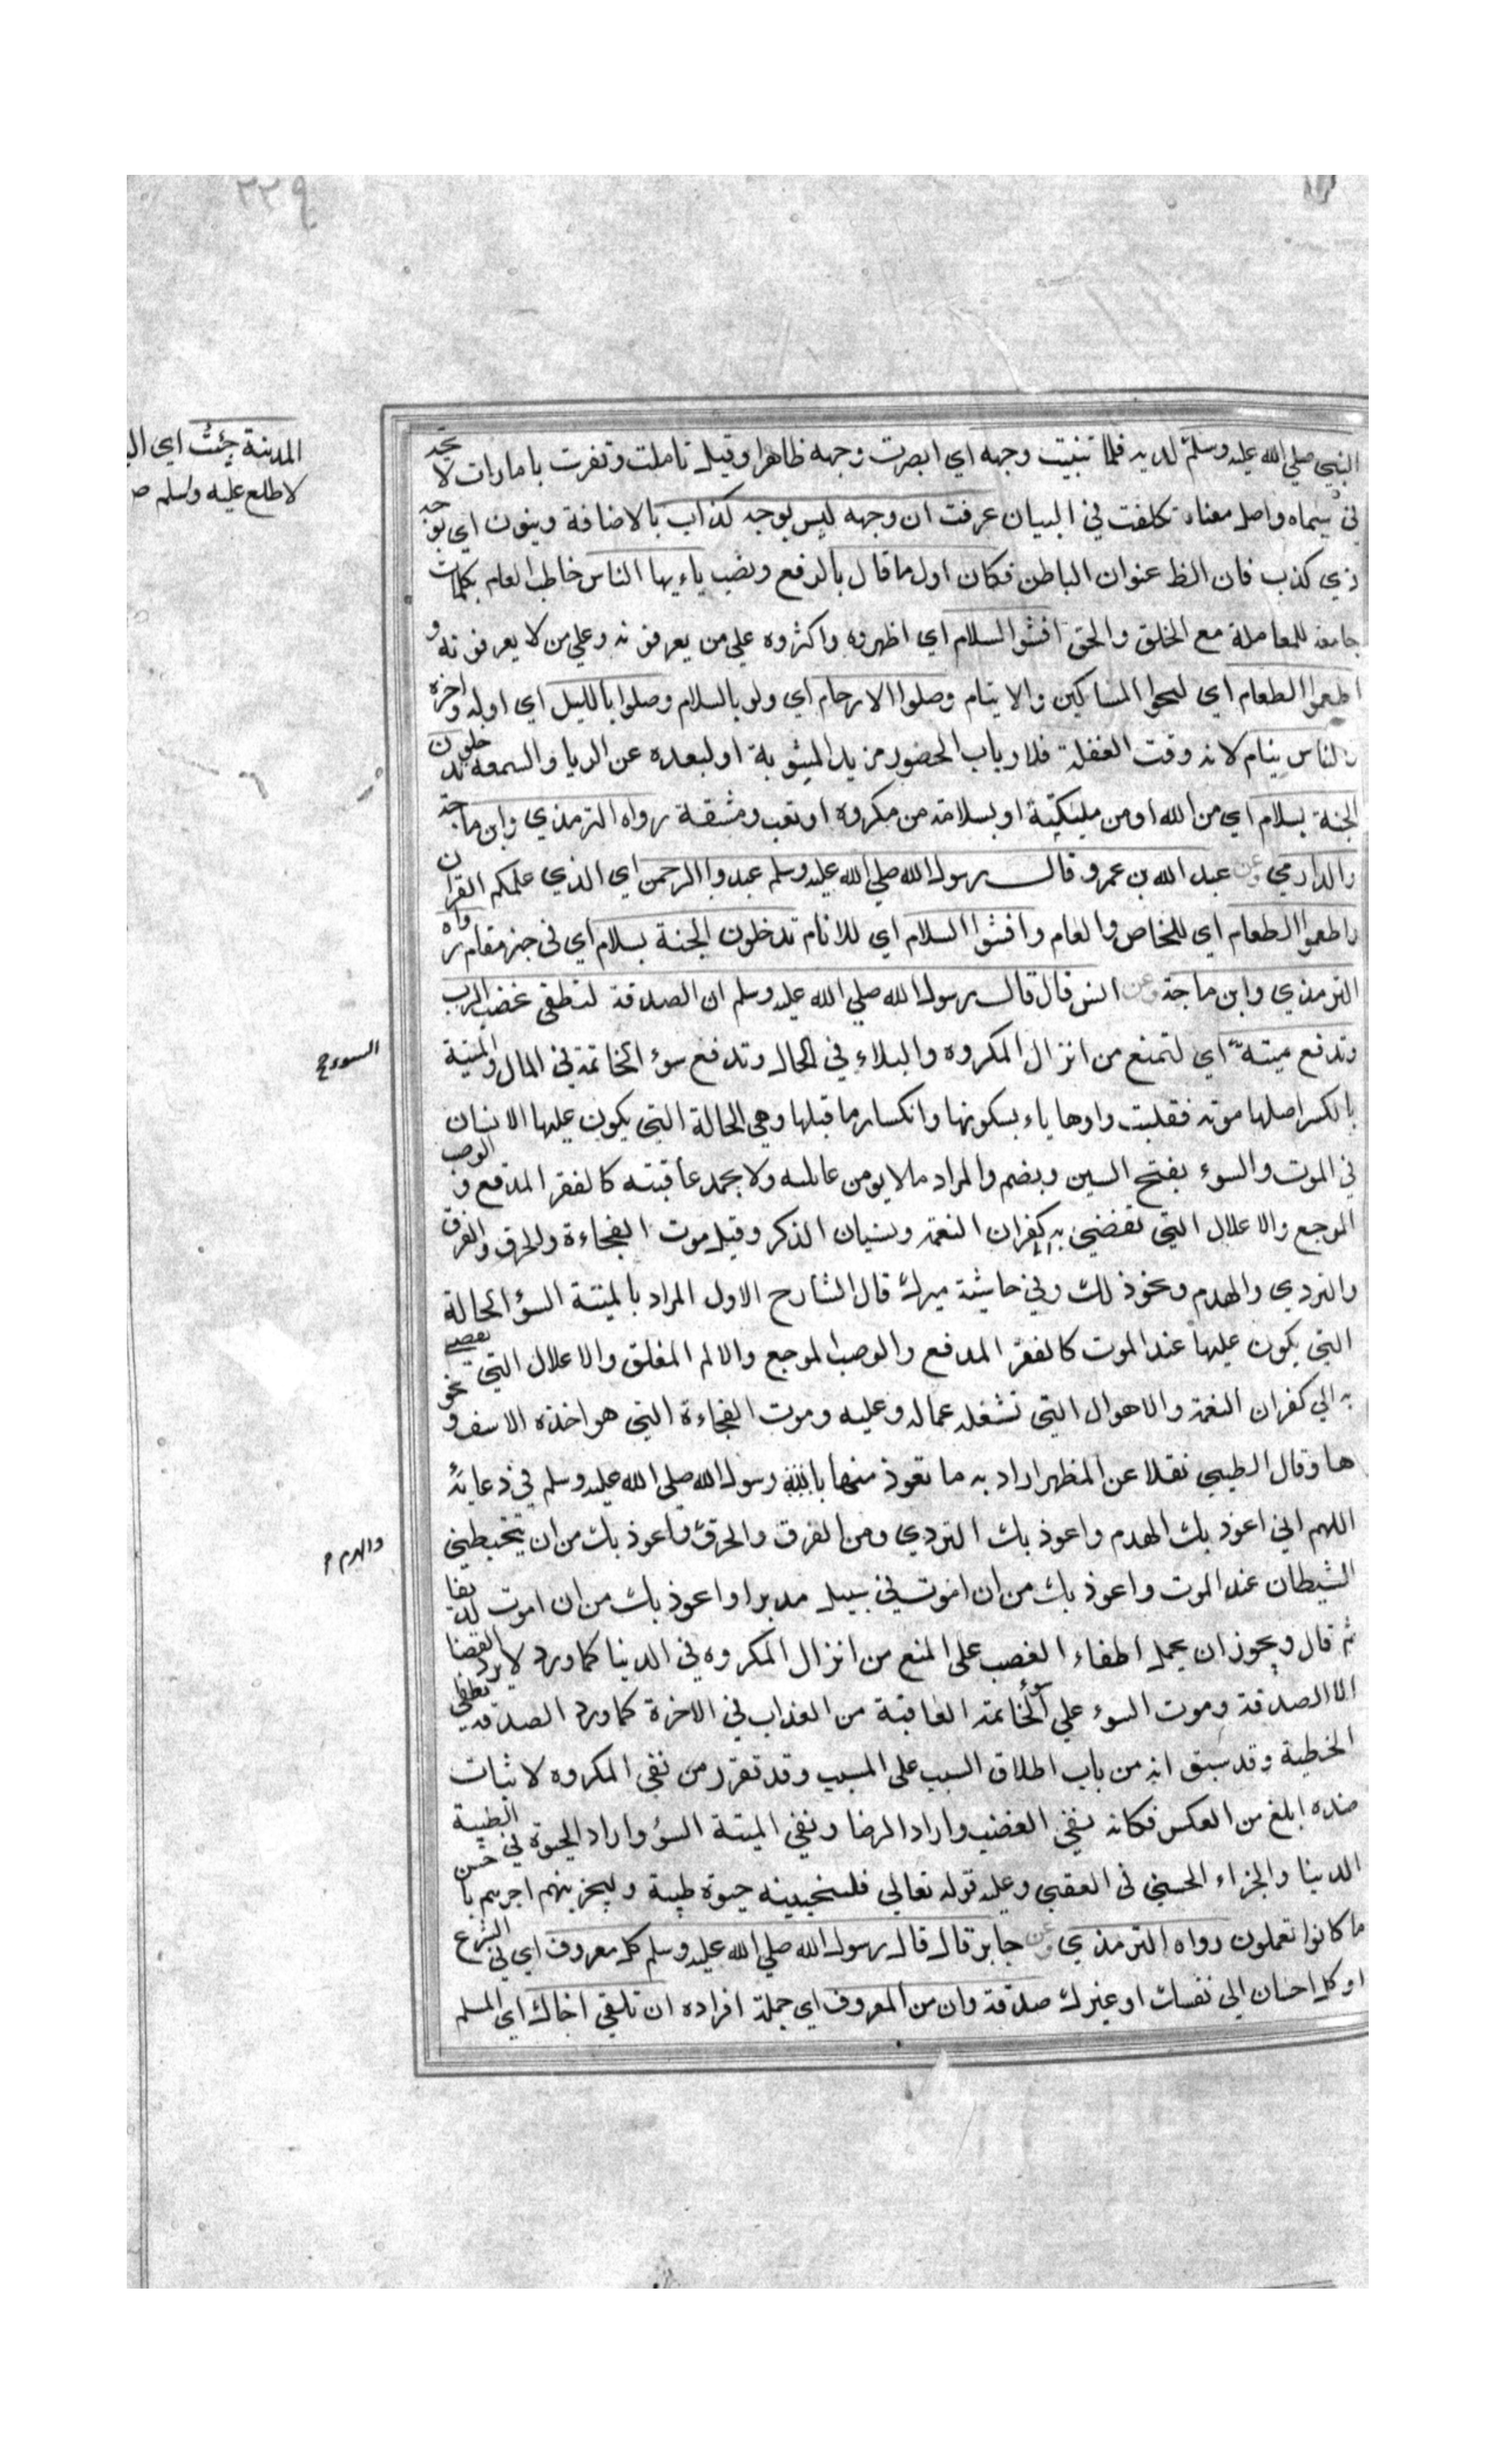 ٣٣٩
المدينة جئت اي
لاطلع عليه وسلم
النبي صلي الله عليه وسلم لديه فلما تبنيت وجهه اي ابصرت وجهه ظاهرا وقيل تاملت وتفرت بامارات لا تحد
في سيماه واصل معناه تكلفت في البيان عرفت ان وجهه ليس بوجه كذاب بالاضافة وينون اي بوجه
ذي كذب فان الظ عنوان الباطن فكان اول ما قال بالرفع ونصب ياءيها الناس خاطب العام بكلمات
جامعة للمعاملة مع الخلق والحق افشوا السلام اي اظهروه واكثروه علي من يعرفونه وعلي من لا يعرفونه و
اطعموا الطعام اي المساكين والايتام وصلوا الارحام اي ولو بالسلام وصلوا بالليل اي اوله واخره
والناس ينام لانه وقت الغفلة فلارباب الحضور مزيد المثوبة او لبعده عن الريا والسمعة تدخلون
الجنة بسلام اي من الله او من مليكتية او بسلامة من مكروه او تعب ومشقة رواه الترمذي وابن ماجة
والدارمي وعن عبد الله بن عمرو قال رسول الله صلي الله عليه وسلم عبدوا الرحمن اي الذي علمكم القران
واطعموا الطعام اي للخاص والعام وافشوا السلام اي للانام تدخلون الجنة بسلام اي في خير مقام رواه
الترمذي وابن ماجة وعن انس قال قال رسول الله صلي الله عليه وسلم ان الصدقة لتطفي غضب الرب
وتدفع ميتة اي لتمنع من انزال المكروه والبلاء في الحال وتدفع سوء الخاتمة في المال والميتة
السوء صح
بالكسر اصلها موته فقلبت واوها ياء بسكونها وانكسار ما قبلها وهي الحالة التي يكون عليها الانسان
في الموت والسوء بفتح السين ويضم والمراد ما لا يومن عائلته ولا يحمد عاقبته كالفقر المدقع والوصب
الموجع والاعلال التي تفضي به كفران النعمة ونسيان الذكر وقيل موت الفجاءة والحرق والغرق
والتردي والهدم ونحو ذلك وفي حاشية ميرك قال الشارح الاول المراد بالميتة السؤ الحالة
التي يكون عليها عند الموت كالفقر المدقع والوصب الموجع والالم المقلق والاعلال التي تفضي
به الي كفران النعمة والاهوال التي تشغله عماله وعليه وموت الفجاءة التي هو اخذة الاسف ونحو
ها وقال الطيبي نقلا عن المظهر اراد به ما تعوذ منها رسول الله صلي الله عليه وسلم في دعائه
اللهم اني اعوذ بك الهدم واعوذ بك التردي ومن الغرق والحرق واعوذ بك من ان يتخبطني
والهرم
الشيطان عند الموت واعوذ بك من ان اموت في سبيل مدبرا واعوذ بك من ان اموت لديغا
ثم قال ويجوز ان يحمل اطفاء الغصب على المنع من انزال المكروه في الدنيا كما ورد لا يرد القضا
الا الصدقة وموت السوء علي سوء الخاتمة العاقبة من العذاب في الاخرة كما ورد الصدقة تطفي
الخطية وقد سبق انه من باب اطلاق السبب على المسبب وقد تقرر من نفي المكروه لاثبات
ضده ابلغ من العكس فكانه نفي الغضب واراد الرضا ونفي الميتة السؤ واراد الحيوة الطيبة في
الدنيا والجزاء الحسني في العقبي وعليه قوله تعالي فلنحيينه حيوة طيبة ولنجزينهم اجرهم باحسن
ما كانوا تعملون رواه الترمذي وعن جابر قال قال رسول الله صلي الله عليه وسلم كل معروف اي في الشرع
او كل احسان الي نفسك او غيرك صدقة وان من المعروف اي جملة افراده ان تلقي اخاك اي المسلم